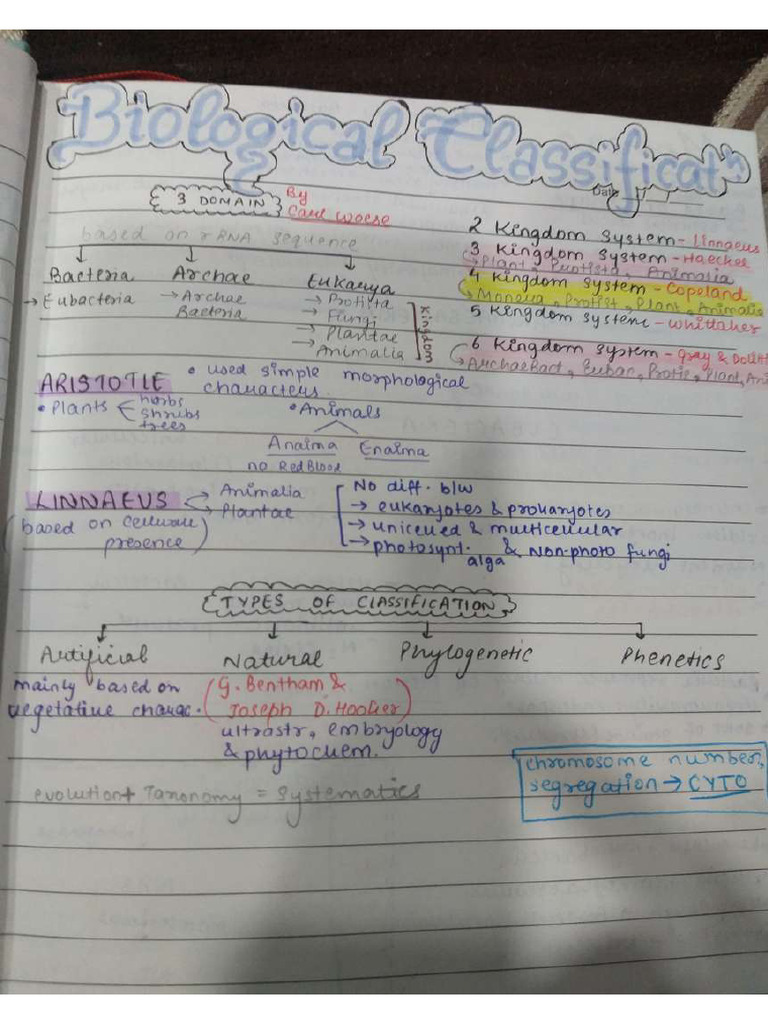 Biological Classificatn
Date
3 DOMAIN
By
Carl Woese
based on rRNA sequence
Bacteria
Archae
Eukarya
→ Eubacteria
→ Archae
Bacteria
→ Protista
→ Fungi
→ Plantae
→ Animalia
2 Kingdom System - Linnaeus
3 Kingdom System - Haeckel
Plant, Protista, Animalia
4 Kingdom System - Copeland
Monera, Protist, Plant, Animalis
5 Kingdom System - Whittaker
6 Kingdom System - Gray & Doolitt
ArchaeBact, Eubac, Protis, Plant, Ani
ARISTOTLE
• used simple morphological
characters.
• Plants
herbs
shrubs
trees
• Animals
Anaima
Enaima
no RedBlood
LINNAEUS
→ Animalia
→ Plantae
(based on cellwall
presence)
No diff. b/w
→ eukaryotes & prokaryotes
→ unicelled & multicellular
→ photosynt. alga & Non-photo fungi
TYPES OF CLASSIFICATION
Artificial
Natural
Phylogenetic
Phenetics
mainly based on
vegetative charac.
(G. Bentham &
Joseph D. Hooker)
ultrastr, embryology
& phytochem.
chromosome number,
segregation → CYTO
evolution + Taxonomy = Systematics